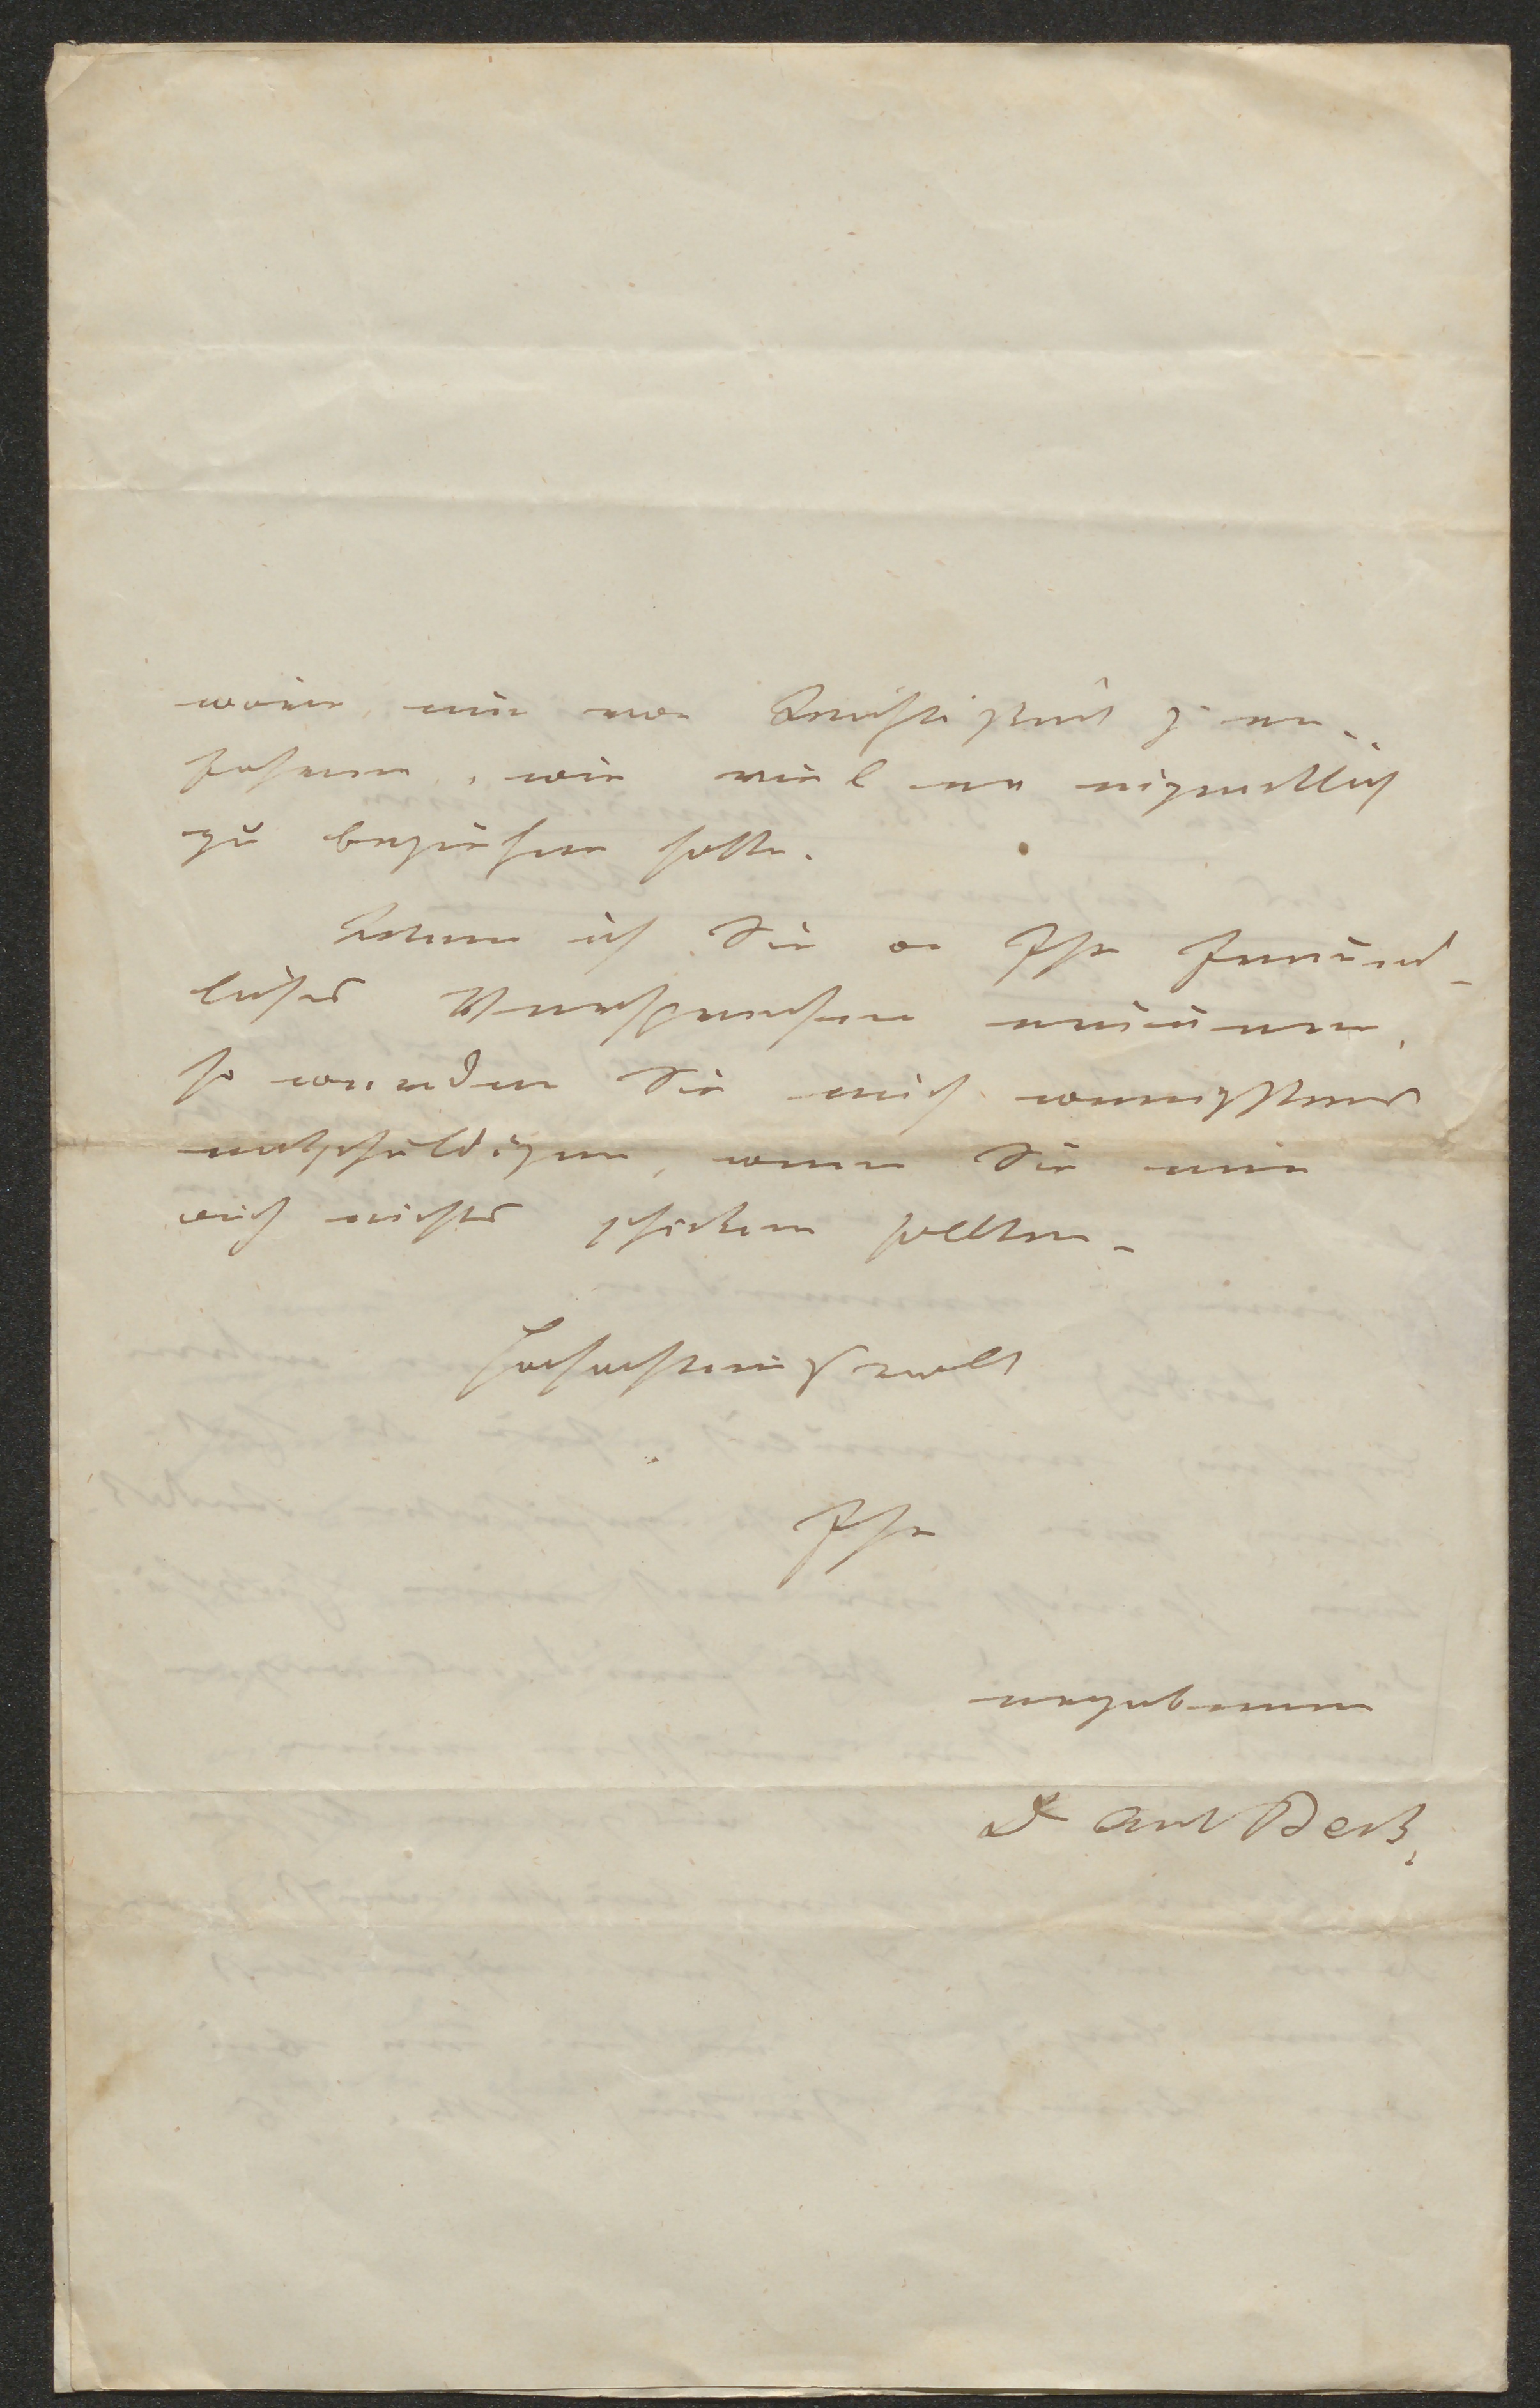 wäre mir von Wichtigkeit z. er-
fahren, wie viel er eigentlich
zu beziehen hatte.
ich Sie an Ihr freund-
liches Versprechen erinnern,
so werden Sie mich wenigstens
entschuldigen, wenn Sie mir
auch nichts schicken sollten.
Hochachtungsvoll
Ihr
ergebener
Dr Ant Beck